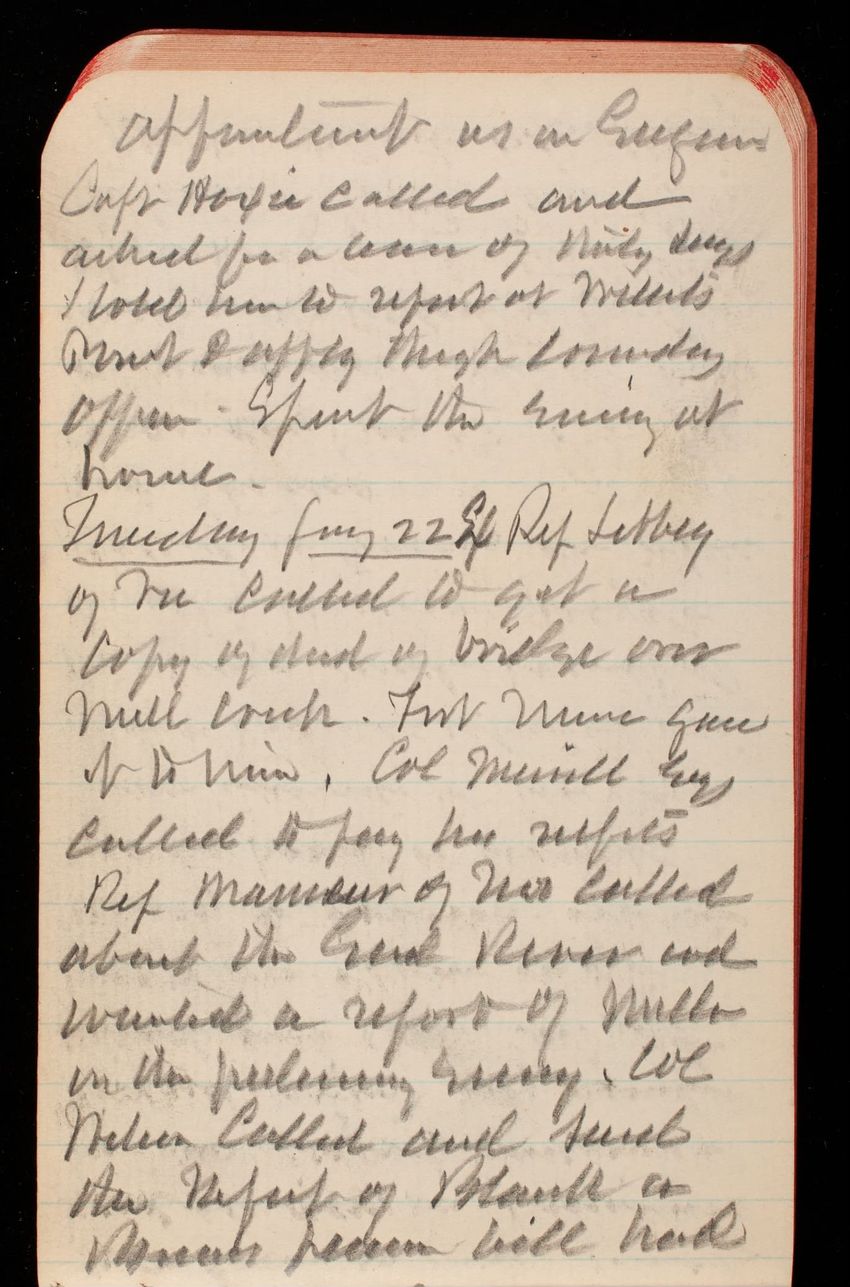 appointment as an Engineer
Capt Hoxie called and
asked for a leave of thirty days
I told him to report at Willets
Point & apply through Comndng
Officer. Spent the evening at
home.
Tuesday Jany 22 Ex Rep Libbey
of Me called to get a
copy of deed of bridge over
Mill Creek. First Mme gave
it to him. Col Merrill Engs
called to pay his respects
Rep of Mo called
about the Grand River and
wanted a report of Miller
on the preliminary survey. Col
Wilson called and said
the Report of Blank a
pension bill had